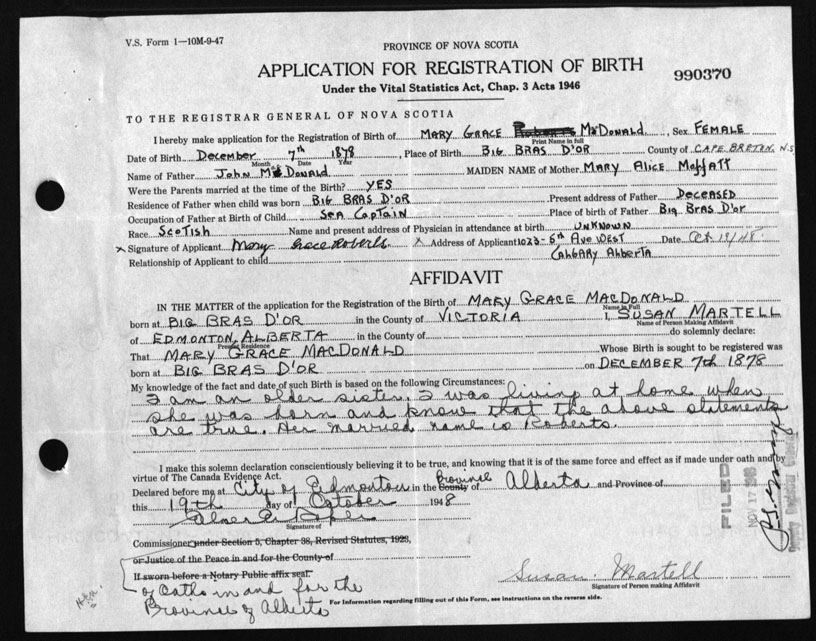 V.S. Form 1—10M-9-47
PROVINCE OF NOVA SCOTIA
APPLICATION FOR REGISTRATION OF BIRTH
990370
Under the Vital Statistics Act, Chap. 3 Acts 1946
TO THE REGISTRAR GENERAL OF NOVA SCOTIA
I hereby make application for the Registration of Birth of MARY GRACE Roberts McDONALD, Sex FEMALE
Print Name in full
Date of Birth December 7th 1878, Place of Birth BIG BRAS D'OR County of CAPE BRETON, N.S
Month Date Year
Name of Father JOHN McDONALD MAIDEN NAME of Mother MARY ALICE MOFFATT
Were the Parents married at the time of the Birth? YES
Residence of Father when child was born BIG BRAS D'OR Present address of Father DECEASED
Occupation of Father at Birth of Child SEA CAPTAIN Place of birth of Father BIG BRAS D'or
Race SCOTISH Name and present address of Physician in attendance at birth UNKNOWN
X Signature of Applicant Mary Grace Roberts X Address of Applicant 1023-5th AVE WEST Date Oct 19/48
Relationship of Applicant to child CALGARY ALBERTA
AFFIDAVIT
IN THE MATTER of the application for the Registration of the Birth of MARY GRACE MACDONALD
Name in Full
born at BIG BRAS D'OR in the County of VICTORIA I, SUSAN MARTELL
Name of Person Making Affidavit
of EDMONTON, ALBERTA in the County of do solemnly declare:
Present Residence
That MARY GRACE MACDONALD Whose Birth is sought to be registered was
born at BIG BRAS D'OR on DECEMBER 7th 1878
My knowledge of the fact and date of such Birth is based on the following Circumstances:
I am an older sister, I was living at home when
she was born and know that the above statements
are true. Her married name is Roberts.
I make this solemn declaration conscientiously believing it to be true, and knowing that it is of the same force and effect as if made under oath and by
virtue of The Canada Evidence Act.
Declared before me at City of Edmonton in the County Province of Alberta and Province of
this 19th day of October 1948
Signature of
Commissioner under Section 5, Chapter 38, Revised Statutes, 1923,
or Justice of the Peace in and for the County of
If sworn before a Notary Public affix seal
of Oaths in and for the
Province of Alberta
Susan Martell
Signature of Person making Affidavit
For Information regarding filling out of this Form, see instructions on the reverse side.
FILED
NOV 17 1948
Deputy Registrar General